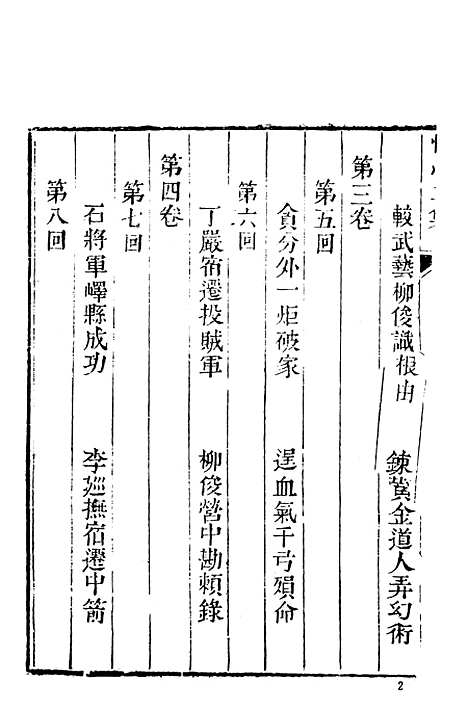 較武藝柳俊識根由　鍊黃金道人弄幻術
第三卷
第五回
貪分外一炬破家　逞血氣千弓殞命
第六回
丁嚴宿遷投賊軍　柳俊營中勘賴錄
第四卷
第七回
石將軍嶧縣成功　李廵撫宿遷中箭
第八回
2